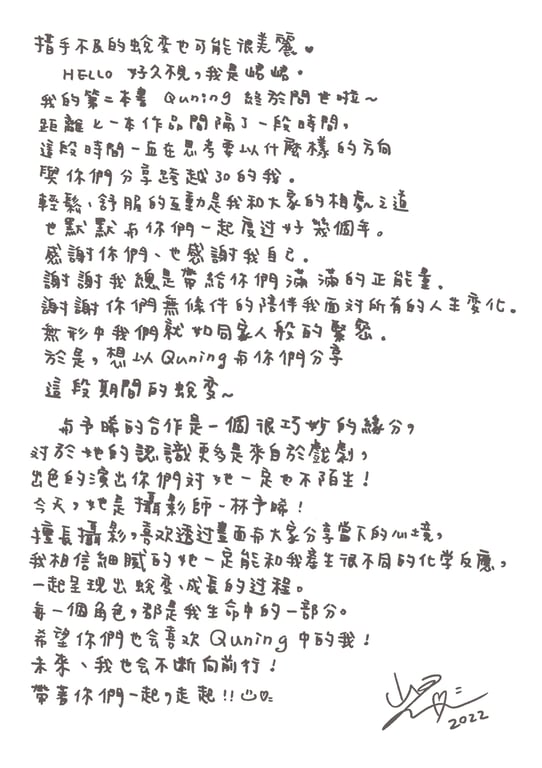 措手不及的蛻变也可能很美麗♥
HELLO 好久不見，我是峮峮。
我的第二本書 Quning 終於問世啦～
距離上一本作品間隔了一段時間，
這段時間一直在思考要以什麼樣的方向
與你們分享跨越30的我。
輕鬆、舒服的互動是我和大家的相處之道
也默默与你們一起度过好幾個年。
感謝你們、也感謝我自己。
謝謝我總是帶給你們滿滿的正能量。
謝謝你們無條件的陪伴我面对所有的人生变化。
無形中我們就如同家人般的緊密。
於是，想以Quning与你們分享
這段期間的蛻变～
与予晞的合作是一個很巧妙的緣分，
对於她的認識更多是來自於戲劇，
出色的演出你們对她一定也不陌生！
今天，她是攝影師-林予晞！
擅長攝影，喜欢透过畫面与大家分享當下的心境，
我相信細膩的她一定能和我產生很不同的化学反應，
一起呈現出蛻变、成長的过程。
每一個角色，都是我生命中的一部分。
希望你們也会喜欢 Quning 中的我！
未來、我也会不斷向前行！
帶著你們一起，走起!!
2022